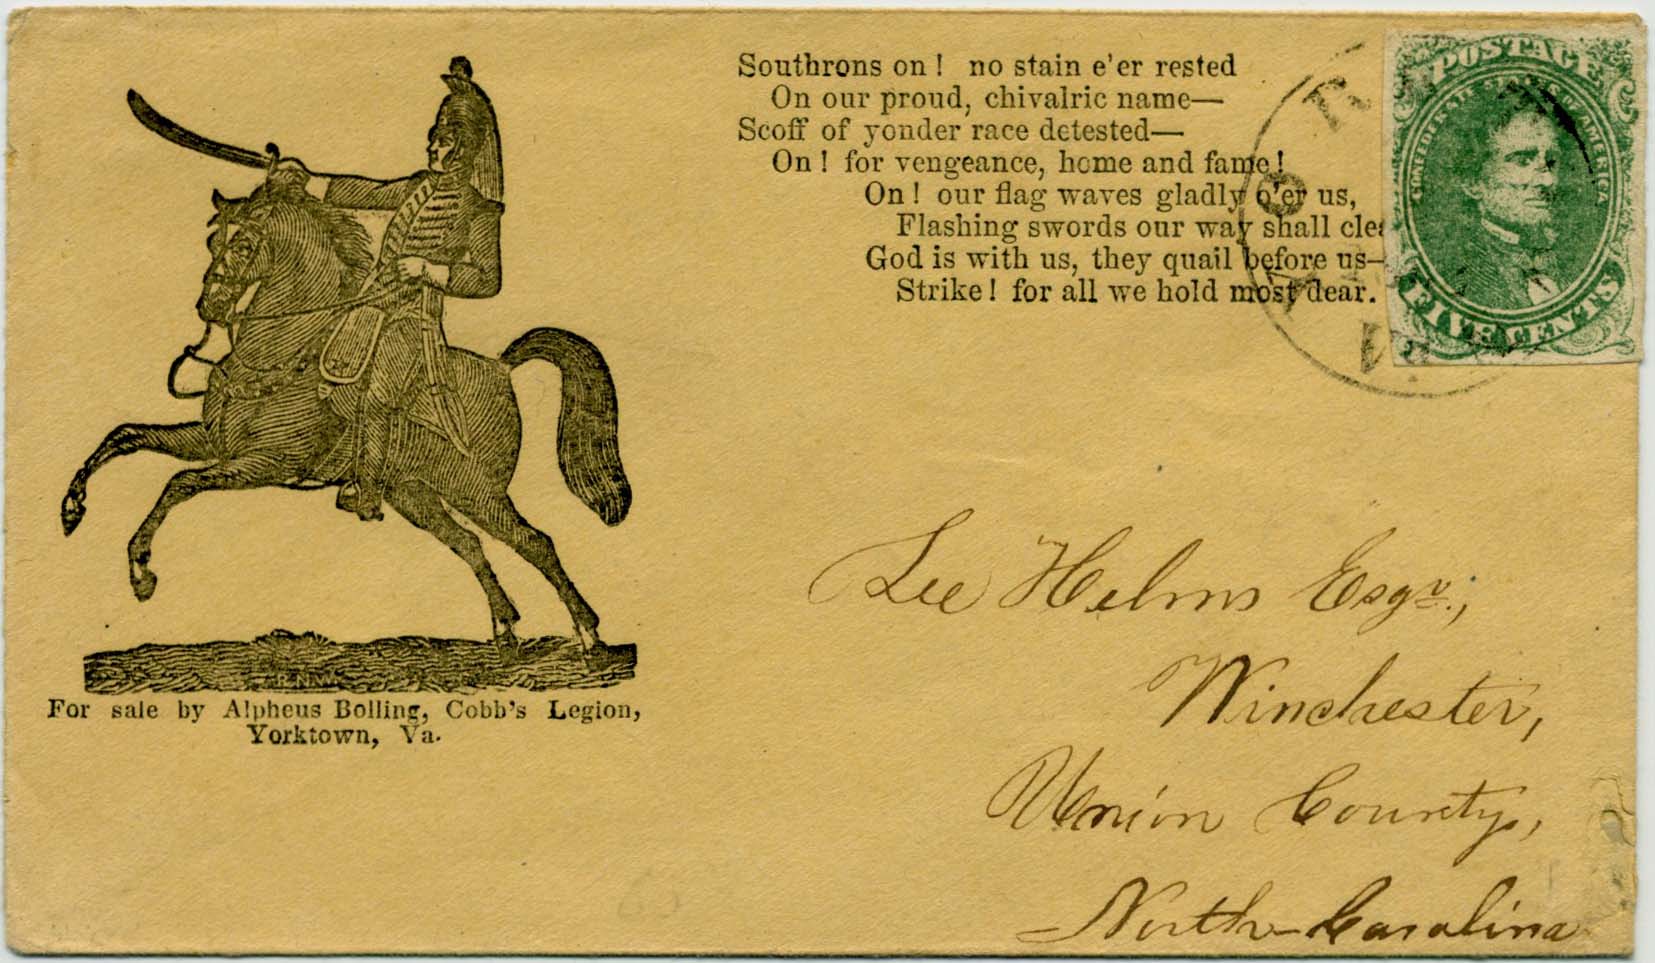 Southrons on! no stain e'er rested
On our proud, chivalric name—
Scoff of yonder race detested—
On! for vengeance, home and fame!
On! our flag waves gladly o'er us,
Flashing swords our way shall
God is with us, they quail before us—
Strike! for all we hold most dear.
POSTAGE
CONFEDERATE STATES OF AMERICA
FIVE CENTS
R.N.W.
For sale by Alpheus Bolling, Cobb's Legion,
Yorktown, Va.
Lee Helms Esqr.,
Winchester,
Union County,
North-Carolina